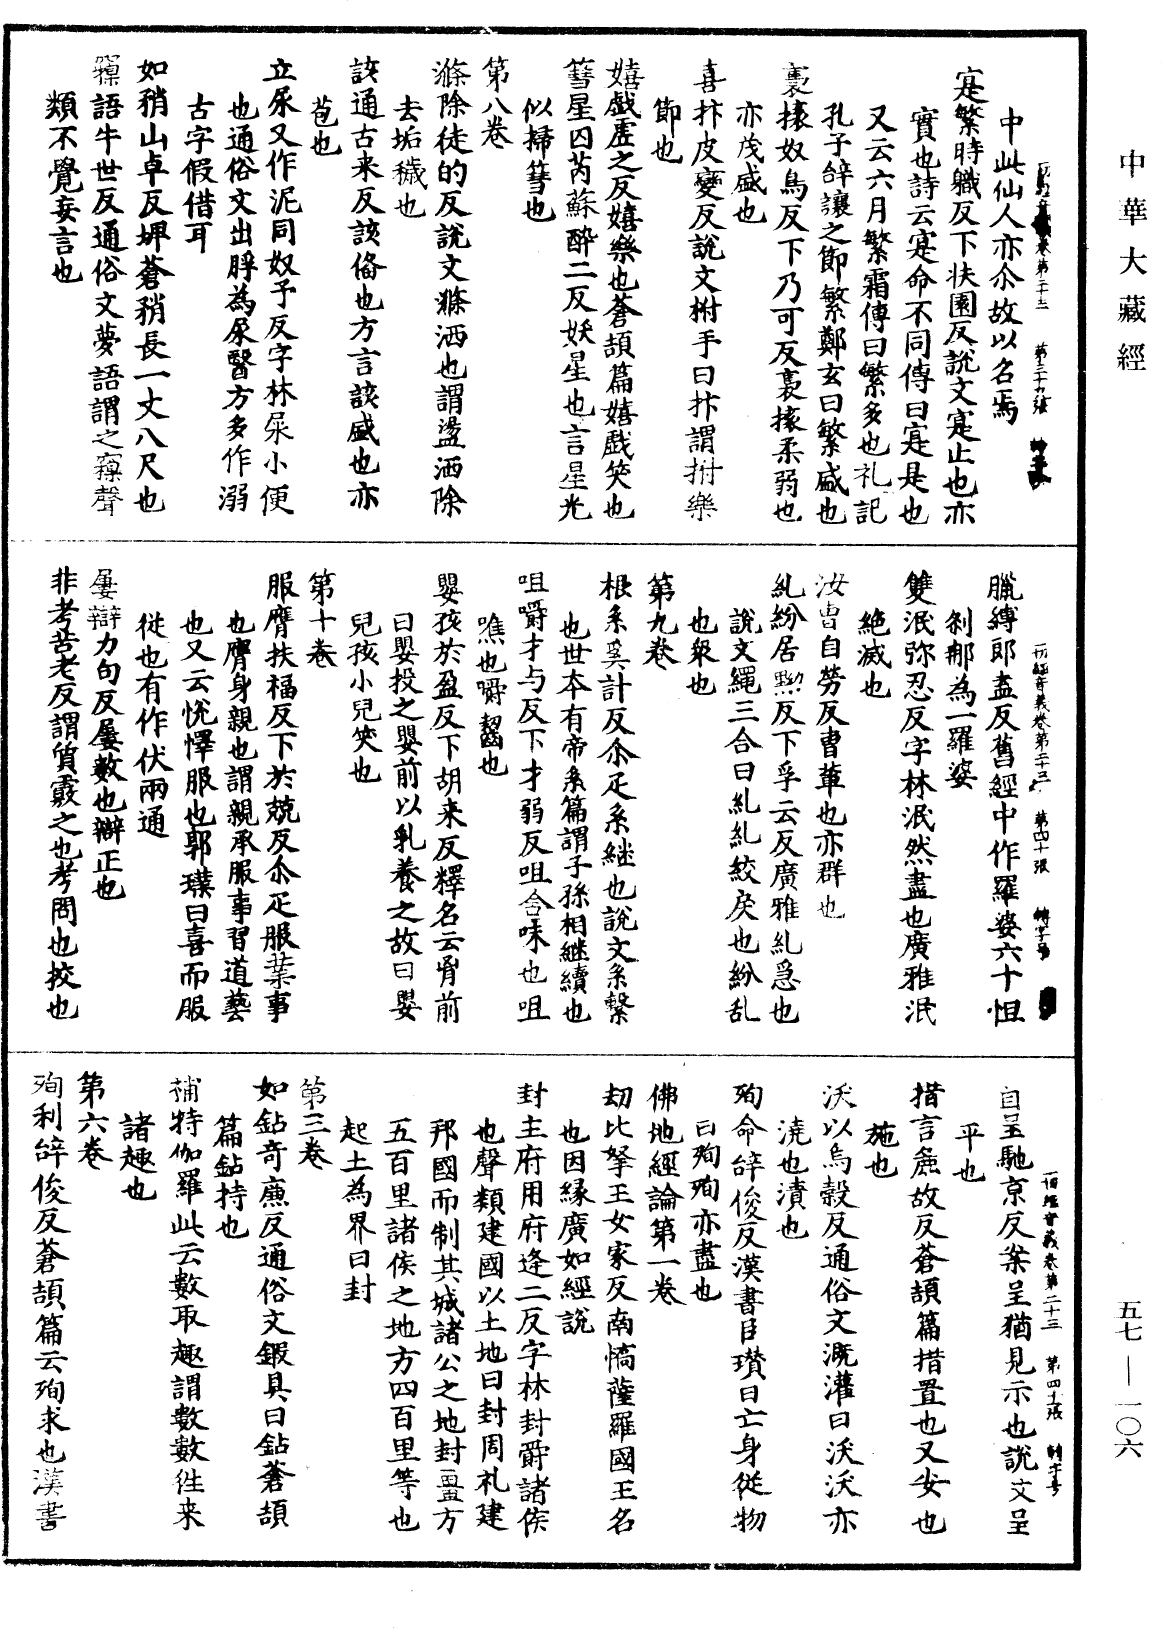 中華大藏經
五七—一〇六
中此仙人亦尒故以名焉
寔繁時職反下扶園反說文寔止也亦
實也詩云寔命不同傳曰寔是也
又云六月繁霜傳曰繁多也礼記
孔子辝讓之節繁鄭玄曰繁盛也
裛㨎奴鳥反下乃可反裛㨎柔弱也
亦茂盛也
喜抃皮變反說文拊手曰抃謂拊樂
節也
嬉戲虗之反嬉樂也蒼頡篇嬉戲笑也
篲星囚芮蘇醉二反妖星也言星光
似掃篲也
第八卷
滌除徒的反說文滌洒也謂盪洒除
去垢穢也
該通古来反該俻也方言該咸也亦
苞也
立尿又作泥同奴予反字林尿小便
也通俗文出脬為尿醫方多作溺
古字假借耳
如矟山卓反埤蒼矟長一丈八尺也
㝱語牛世反通俗文夢語謂之㝱聲
類不覺妄言也
臘縛郎盍反舊經中作羅婆六十怛
剎那為一羅婆
雙泯弥忍反字林泯然盡也廣雅泯
絶滅也
汝曺自勞反曺軰也亦群也
糺紛居黝反下孚云反廣雅糺急也
說文繩三合曰糺糺絞戾也紛乱
也衆也
第九卷
根系奚計反尒疋系継也說文系繫
也世夲有帝系篇謂子孫相継續也
咀嚼才与反下才弱反咀含味也咀
噍也嚼齧也
嬰孩於盈反下胡来反釋名云胷前
曰嬰投之嬰前以乳養之故曰嬰
兒孩小兒笑也
第十卷
服膺扶福反下於兢反尒疋服業事
也膺身親也謂親承服事習道藝
也又云悅懌服也郭璞曰喜而服
從也有作伏兩通
屢辯力句反屢數也辯正也
非考苦老反謂質覈之也考問也挍也
自呈馳京反案呈猶見示也說文呈
平也
措言麁故反蒼頡篇措置也又安也
施也
沃以烏穀反通俗文溉灌曰沃沃亦
澆也漬也
殉命辝俊反漢書臣瓚曰亡身從物
曰殉殉亦盡也
佛地經論第一卷
劫比拏王女家反南憍薩羅國王名
也因緣廣如經說
封主府用府逢二反字林封爵諸侯
也聲類建國以土地曰封周礼建
邦國而制其城諸公之地封畺方
五百里諸侯之地方四百里等也
起土為界曰封
第三卷
如鉆奇廉反通俗文鍜具曰鉆蒼頡
篇鉆持也
補特伽羅此云數取趣謂數數徃来
諸趣也
第六卷
殉利辝俊反蒼頡篇云殉求也漢書